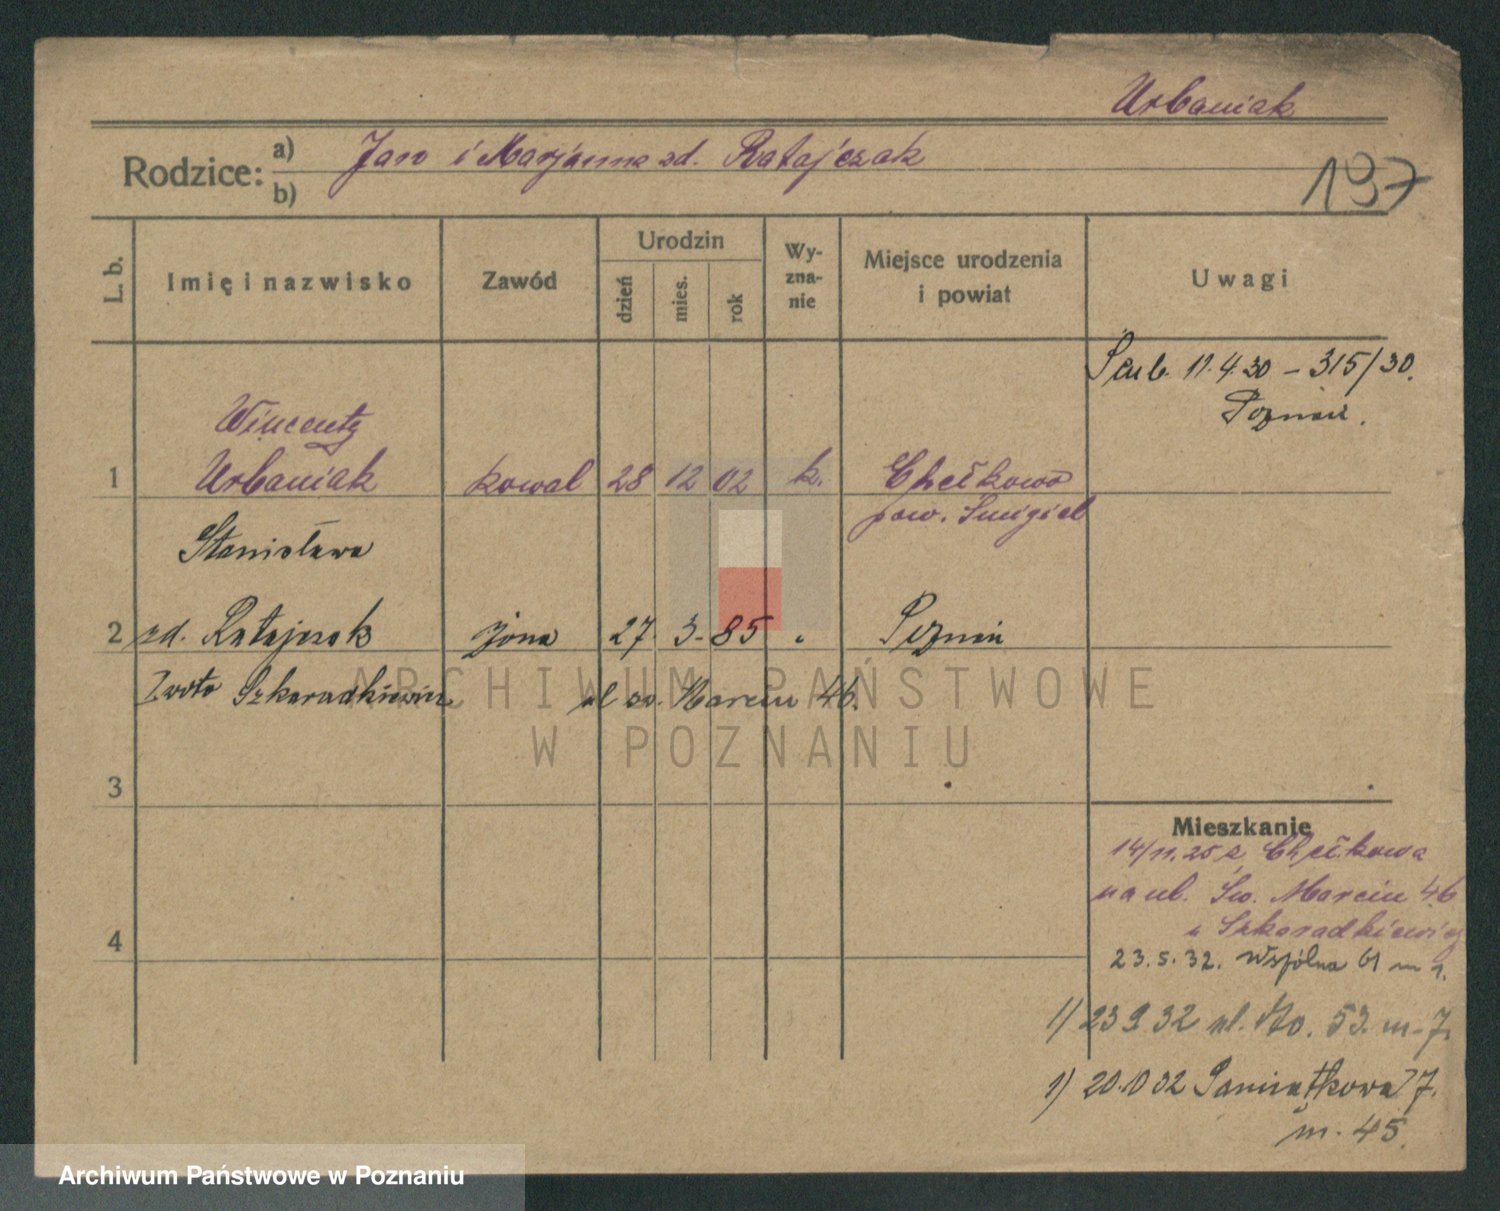 Urbaniak
Rodzice: a) Jan i Marjanna zd. Ratajczak
b)
197
L. b. Imię i nazwisko Zawód Urodzin dzień mies. rok Wy-zna-nie Miejsce urodzenia i powiat Uwagi
Ślub. 11.4.30 – 315/30.
Poznań.
Wincenty
1 Urbaniak kowal 28 12 02 k. Chełkowo
pow. Śmigiel
Stanisława
2 zd. Ratajczak żona 27. 3. 85 " Poznań
I voto Szkaradkiewicz ul św. Marcin 46.
3
Mieszkanie
14/11.25 z Chełkowa
na ul. Św. Marcin 46
u Szkaradkiewicz
4
23.5.32. Wspólna 61 m 1.
1) 23 9 32 ul. 53. m. 7.
1) 20.10 32 Pamiątkowa 7.
m. 45.
ARCHIWUM PAŃSTWOWE
W POZNANIU
Archiwum Państwowe w Poznaniu